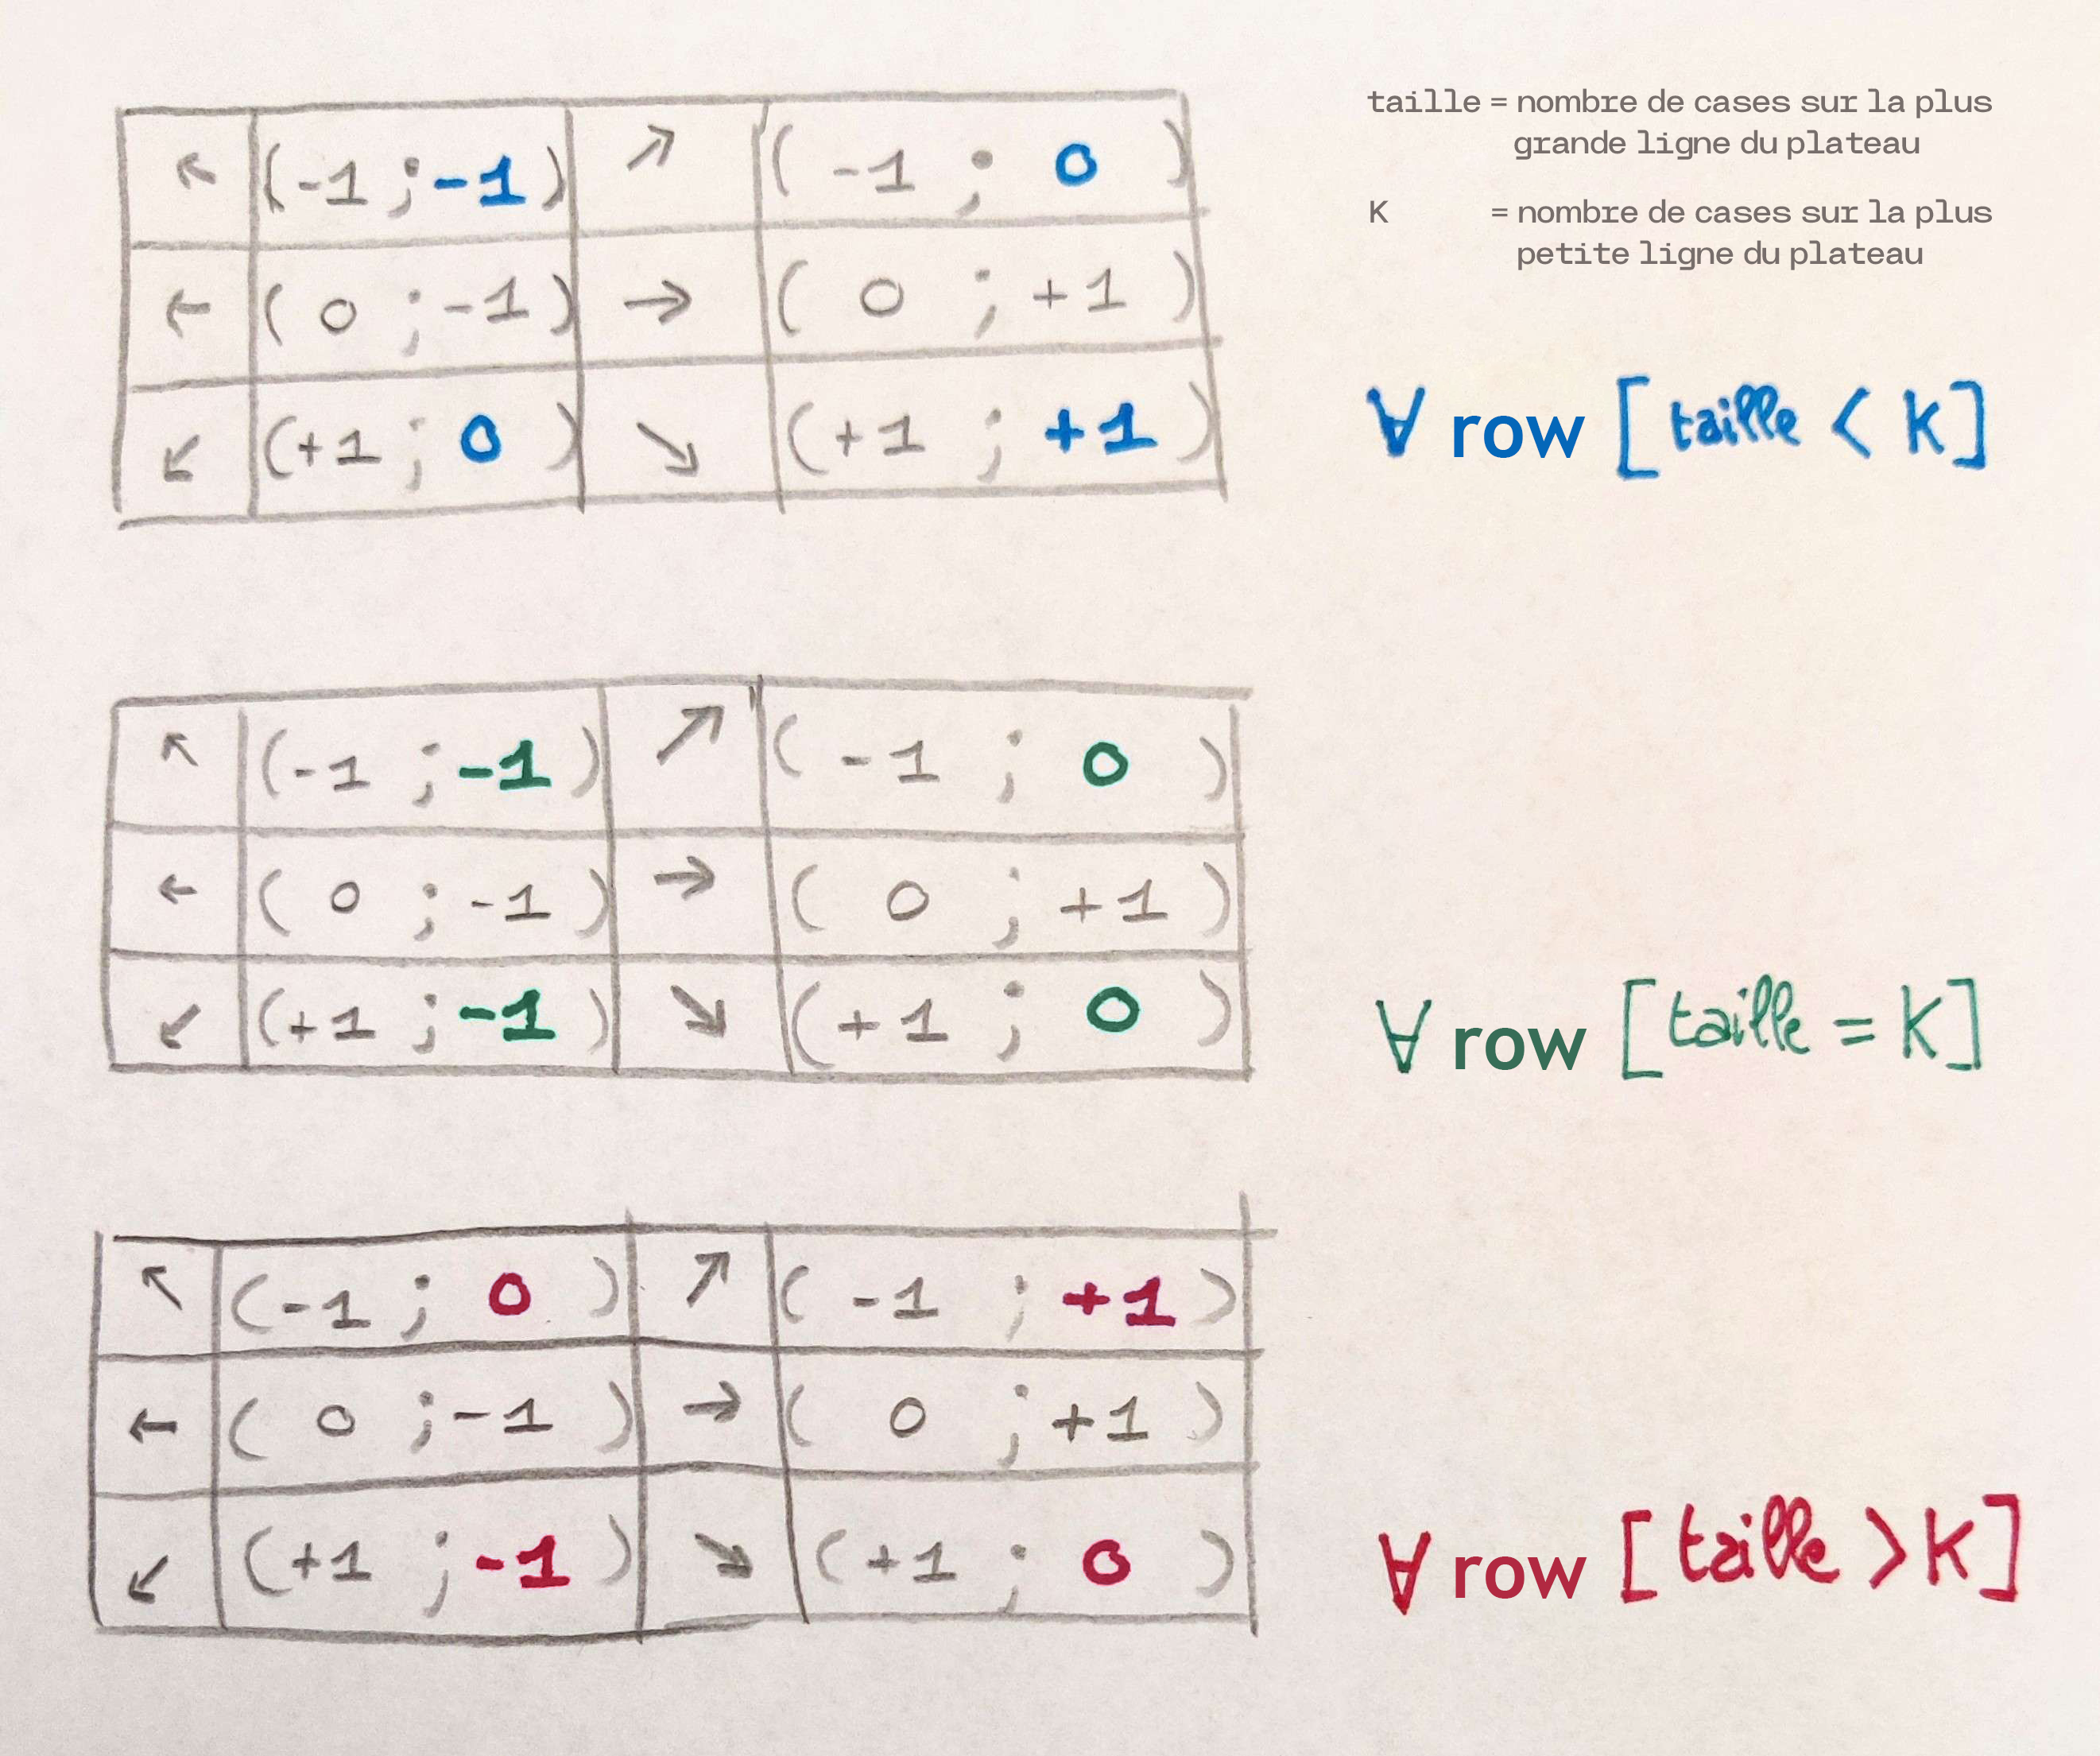 taille = nombre de cases sur la plus
grande ligne du plateau
K = nombre de cases sur la plus
petite ligne du plateau
↖ (-1 ; -1) ↗ ( -1 ; 0 )
← ( 0 ; -1) → ( 0 ; +1 )
↙ (+1 ; 0 ) ↘ (+1 ; +1 )
∀ row [ taille < K ]
↖ (-1 ; -1 ) ↗ ( -1 ; 0 )
← ( 0 ; -1 ) → ( 0 ; +1 )
↙ (+1 ; -1 ) ↘ ( +1 ; 0 )
∀ row [ taille = K ]
↖ (-1 ; 0 ) ↗ ( -1 ; +1 )
← ( 0 ; -1 ) → ( 0 ; +1 )
↙ (+1 ; -1 ) ↘ ( +1 ; 0 )
∀ row [ taille > K ]